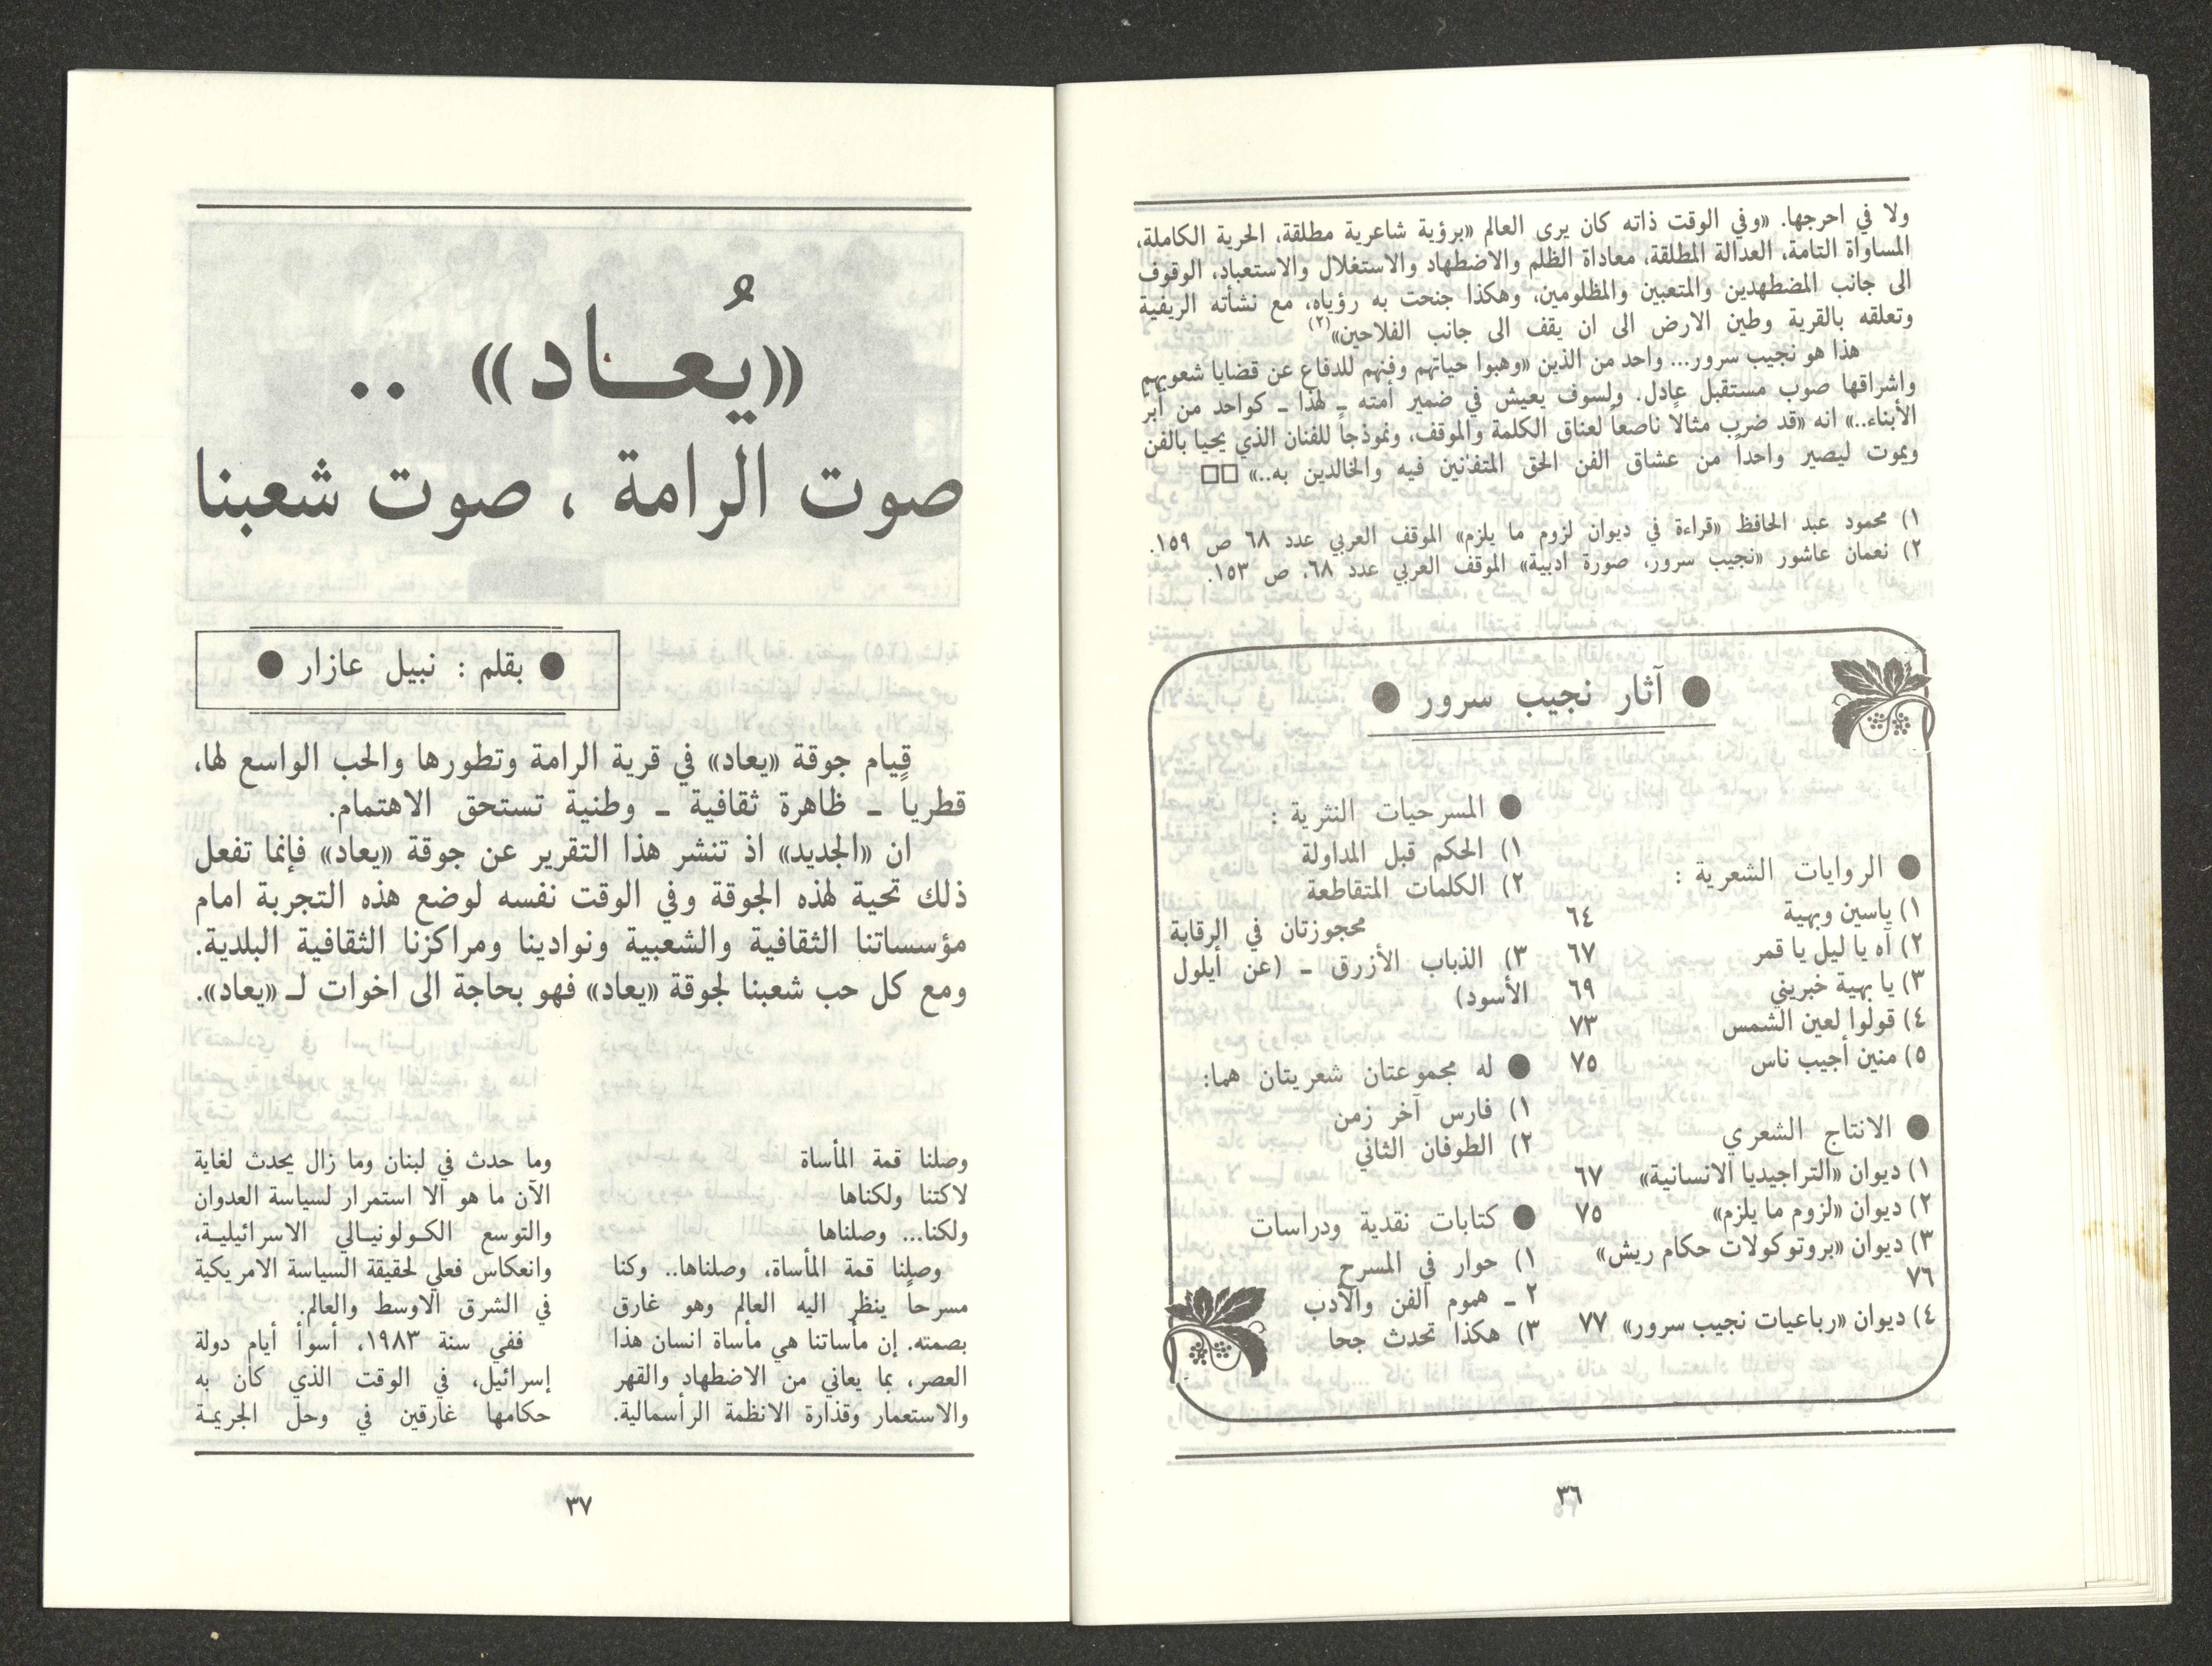 ولا في احرجها. «وفي الوقت ذاته كان يرى العالم «برؤية شاعرية مطلقة، الحرية الكاملة،
المساواة التامة، العدالة المطلقة، معاداة الظلم والاضطهاد والاستغلال والاستعباد، الوقوف
الى جانب المضطهدين والمتعبين والمظلومين، وهكذا جنحت به رؤياه، مع نشأته الريفية
وتعلقه بالقرية وطين الارض الى ان يقف الى جانب الفلاحين»(٢)
هذا هو نجيب سرور... واحد من الذين «وهبوا حياتهم وفنهم للدفاع عن قضايا شعوبهم
واشراقها صوب مستقبل عادل. ولسوف يعيش في ضمير أمته ـ لهذا ـ كواحد من أبرّ
الأبناء..» انه «قد ضرب مثالاً ناصعاً لعناق الكلمة والموقف، ونموذجاً للفنان الذي يحيا بالفن
ويموت ليصير واحداً من عشاق الفن الحق المتفانين فيه والخالدين به..» □□
١) محمود عبد الحافظ «قراءة في ديوان لزوم ما يلزم» الموقف العربي عدد ٦٨ ص ١٥٩.
٢) نعمان عاشور «نجيب سرور، صورة ادبية» الموقف العربي عدد ٦٨، ص ١٥٣.
● آثار نجيب سرور ●
● الروايات الشعرية :
١) ياسين وبهية ٦٤
٢) آه يا ليل يا قمر ٦٧
٣) يا بهية خبريني ٦٩
٤) قولوا لعين الشمس ٧٣
٥) منين أجيب ناس ٧٥
● الانتاج الشعري
١) ديوان «التراجيديا الانسانية» ٦٧
٢) ديوان «لزوم ما يلزم» ٧٥
٣) ديوان «بروتوكولات حكام ريش»
٧٦
٤) ديوان «رباعيات نجيب سرور» ٧٧
● المسرحيات النثرية :
١) الحكم قبل المداولة
٢) الكلمات المتقاطعة
محجوزتان في الرقابة
٣) الذباب الأزرق ـ (عن أيلول
الأسود)
● له مجموعتان شعريتان هما:
١) فارس آخر زمن
٢) الطوفان الثاني
● كتابات نقدية ودراسات
١) حوار في المسرح
٢ ـ هموم الفن والأدب
٣) هكذا تحدث جحا
٣٦
«يُعاد» ..
صوت الرامة ، صوت شعبنا
● بقلم : نبيل عازار ●
قيام جوقة «يعاد» في قرية الرامة وتطورها والحب الواسع لها،
قطرياً ـ ظاهرة ثقافية ـ وطنية تستحق الاهتمام.
ان «الجديد» اذ تنشر هذا التقرير عن جوقة «يعاد» فإنما تفعل
ذلك تحية لهذه الجوقة وفي الوقت نفسه لوضع هذه التجربة امام
مؤسساتنا الثقافية والشعبية ونوادينا ومراكزنا الثقافية البلدية.
ومع كل حب شعبنا لجوقة «يعاد» فهو بحاجة الى اخوات لـ «يعاد».
وصلنا قمة المأساة
لاكتنا ولكناها
ولكنا... وصلناها
وصلنا قمة المأساة، وصلناها.. وكنا
مسرحاً ينظر اليه العالم وهو غارق
بصمته. إن مأساتنا هي مأساة انسان هذا
العصر، بما يعاني من الاضطهاد والقهر
والاستعمار وقذارة الانظمة الرأسمالية.
وما حدث في لبنان وما زال يحدث لغاية
الآن ما هو الا استمرار لسياسة العدوان
والتوسع الكولونيالي الاسرائيلية،
وانعكاس فعلي لحقيقة السياسة الامريكية
في الشرق الاوسط والعالم.
ففي سنة ١٩٨٣، أسوأ أيام دولة
إسرائيل، في الوقت الذي كان به
حكامها غارقين في وحل الجريمة
٣٧